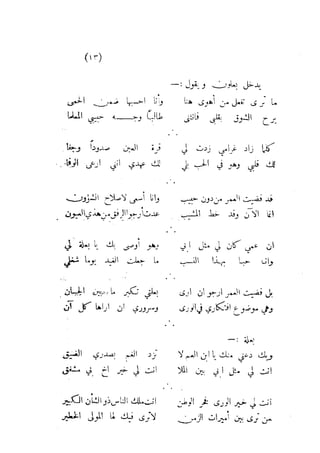 (١٣)
يدخل بعلون ويقول :—
ما ترى تفعل من أهوى هنا وأنا احسبها ضمن الحمى
برح الشوق بقلبي فانثنى طالباً وجه حبيبي
كلما زاد غرامي زدت لي قرة العين صدوداً وجفا
لك قلبي وهو في الحب لك عهدي انني ارعى الوفا
قد قضيت العمر من دون حبيب وانا أسعى لاصلاح الشؤون
انما الآن وقد خط المشيب عدت أرجو الرفق من هذي العيون
ان عمي كان لي مثل ابي وهو أوصى بك يا بعلة لي
وانا حبا بهذا النسب ما جعلت الغيد يوما شغلي
بل قضيت العمر ارجو ان ارى بعلتي تكبر ما بين الحسان
وهي موضوع افتكاري في الورى وسروري ان اراها كل آن
بعلة :—
ويك دعني منك يا ابن العم لا تزد الغم بصدري الضيق
انت لي مثل ابي بين الملا انت لي خير اخ لي مشفق
انت لي خير الورى فخر الوطن انت ملك الناس ذو الشأن الكبير
من ترى بين أميرات الزمن لا ترى فيك لها المولى الخطير